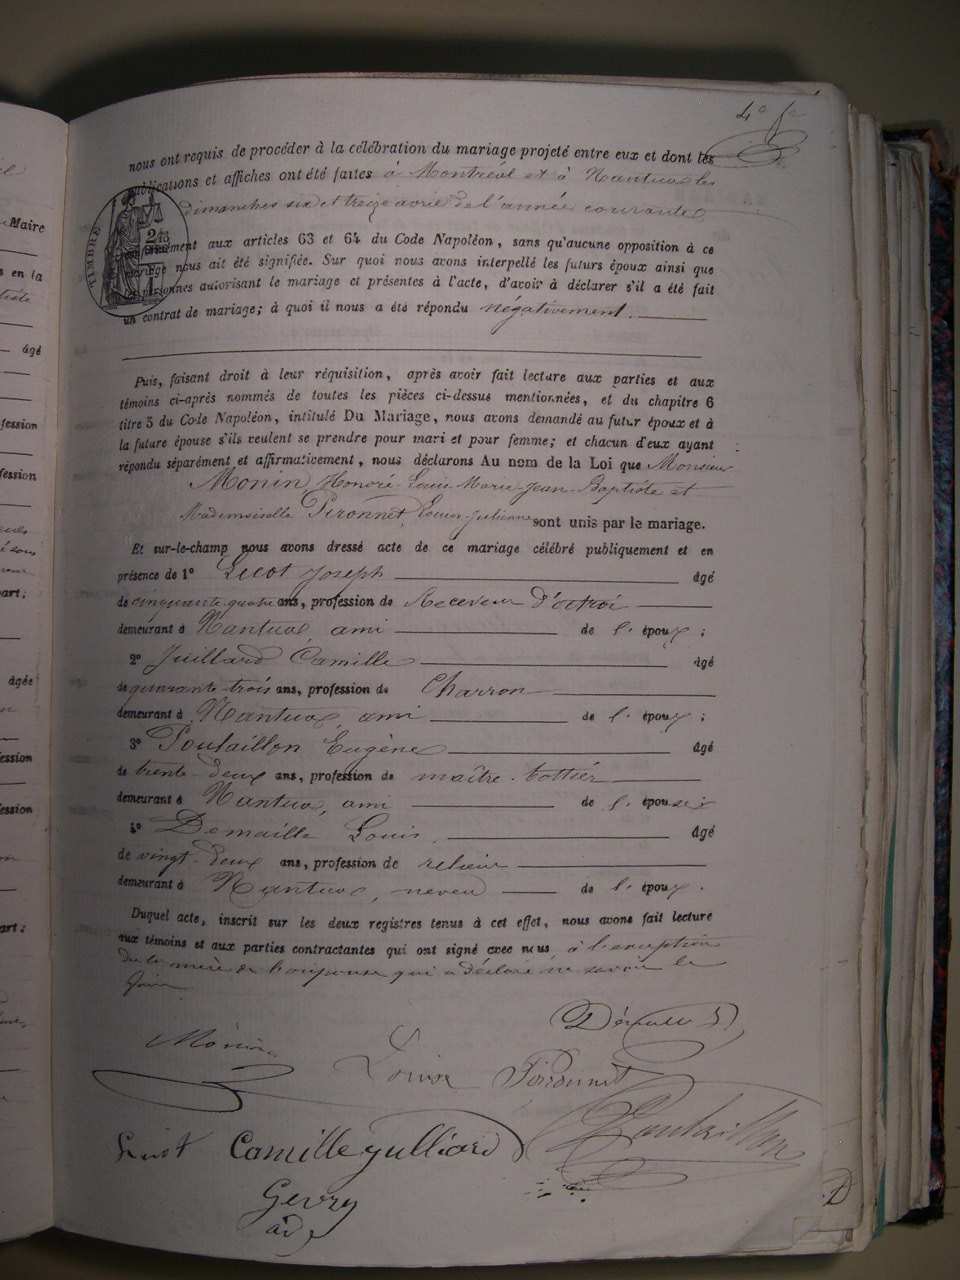 4e f
nous ont requis de procéder à la célébration du mariage projeté entre eux et dont les
publications et affiches ont été faites à Montréal et à Nantua les
dimanches six et treize avril de l'année courante
TIMBRE
conformément aux articles 63 et 64 du Code Napoléon, sans qu'aucune opposition à ce
mariage nous ait été signifiée. Sur quoi nous avons interpellé les futurs époux ainsi que
les personnes autorisant le mariage et présentes à l'acte, d'avoir à déclarer s'il a été fait
un contrat de mariage; à quoi il nous a été répondu négativement.
Puis, faisant droit à leur réquisition, après avoir fait lecture aux parties et aux
témoins ci-après nommés de toutes les pièces ci-dessus mentionnées, et du chapitre 6
titre 5 du Code Napoléon, intitulé Du Mariage, nous avons demandé au futur époux et à
la future épouse s'ils veulent se prendre pour mari et pour femme; et chacun d'eux ayant
répondu séparément et affirmativement, nous déclarons Au nom de la Loi que Monsieur
Monin Honoré-Louis-Marie-Jean-Baptiste et
Mademoiselle Pironnet, Louise-Julienne sont unis par le mariage.
Et sur-le-champ nous avons dressé acte de ce mariage célébré publiquement et en
présence de 1° Joseph âgé
de cinquante-quatre ans, profession de Receveur d'octroi
demeurant à Nantua, ami de l'époux;
2° Juillard Camille âgé
de quarante-trois ans, profession de Charron
demeurant à Nantua, ami de l'époux;
3° Poulaillon Eugène âgé
de trente-deux ans, profession de maître-bottier
demeurant à Nantua, ami de l'épouse;
4° Demaille Louis, âgé
de vingt-deux ans, profession de relieur
demeurant à Nantua, neveu de l'époux.
Duquel acte, inscrit sur les deux registres tenus à cet effet, nous avons fait lecture
aux témoins et aux parties contractantes qui ont signé avec nous, à l'exception
de la mère de l'épouse qui a déclaré ne savoir le
faire
Monin
Louise Pironnet
Poulaillon
Camille Julliard
Gevry
adj